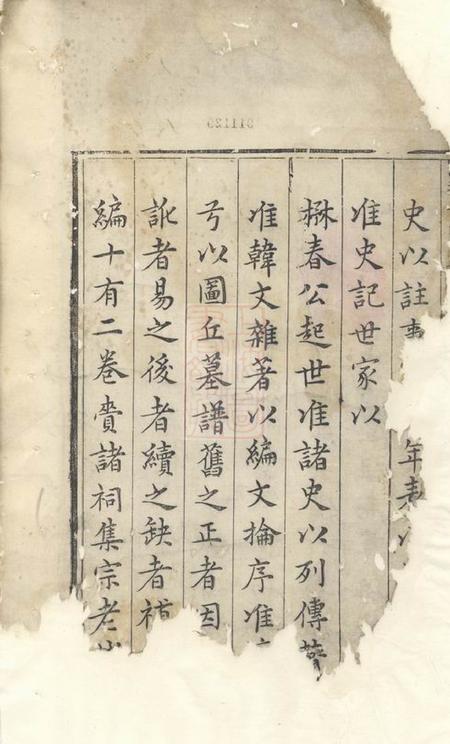 史以註事年表
准史記世家以
楙春公起世准諸史以列傳
准韓文雜著以編文掄序准
亏以圖丘墓譜舊之正者因
訛者易之後者續之缺者補
編十有二卷賫諸祠集宗老